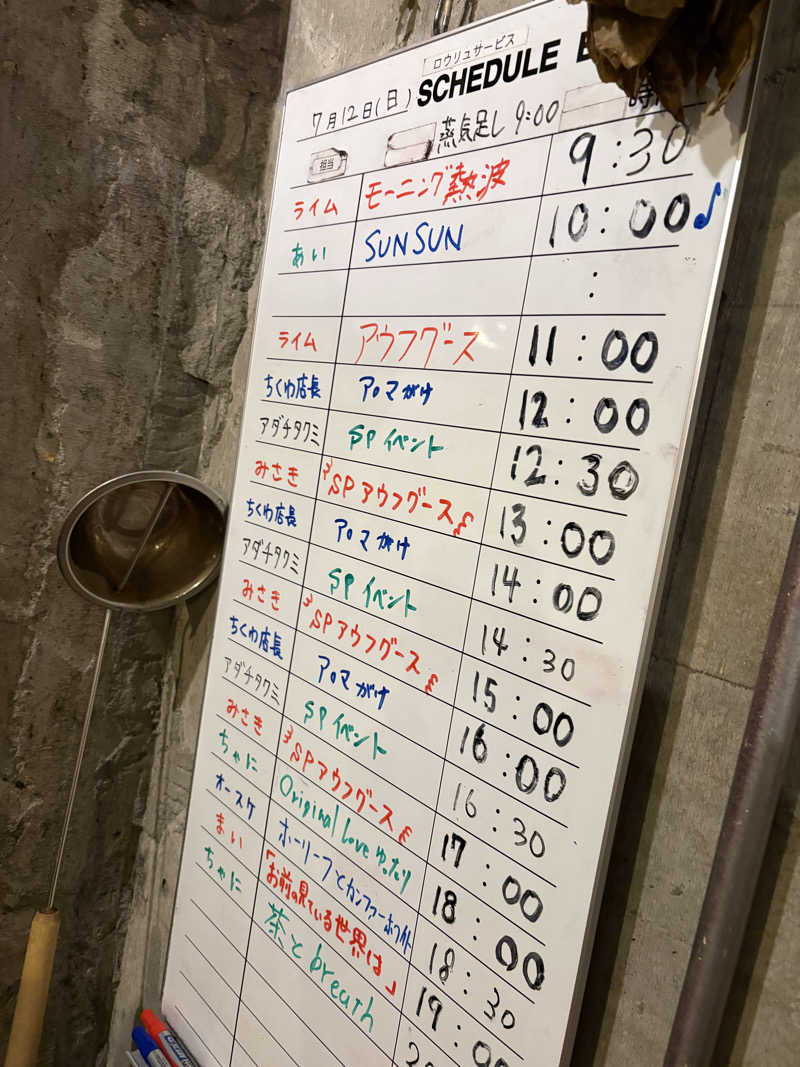 ロウリュサービス
7月12日(日) SCHEDULE
担当 蒸気足し 9:00
ライム モーニング熱波 9:30
あい SUN SUN 10:00♪
:
ライム アウフグース 11:00
ちくわ店長 アロマがけ 12:00
アダチタクミ SPイベント 12:30
みさき SPアウフグース 13:00
ちくわ店長 アロマがけ 14:00
アダチタクミ SPイベント 14:30
みさき SPアウフグース 15:00
ちくわ店長 アロマがけ 16:00
アダチタクミ SPイベント 16:30
みさき SPアウフグース 17:00
ちゃに Original Love ゆったり 18:00
オースケ ホーリーフとカンファーホワイト 18:30
まい 「お前の見ている世界は」 19:00
ちゃに 茶と breath